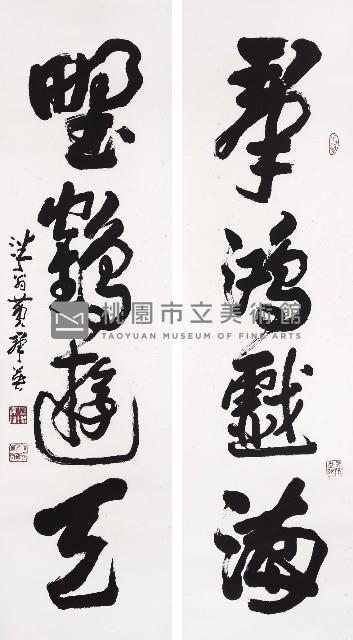 羣鴻戲海
野鶴遊天
翁黃羣英
桃園市立美術館
TAOYUAN MUSEUM OF FINE ARTS